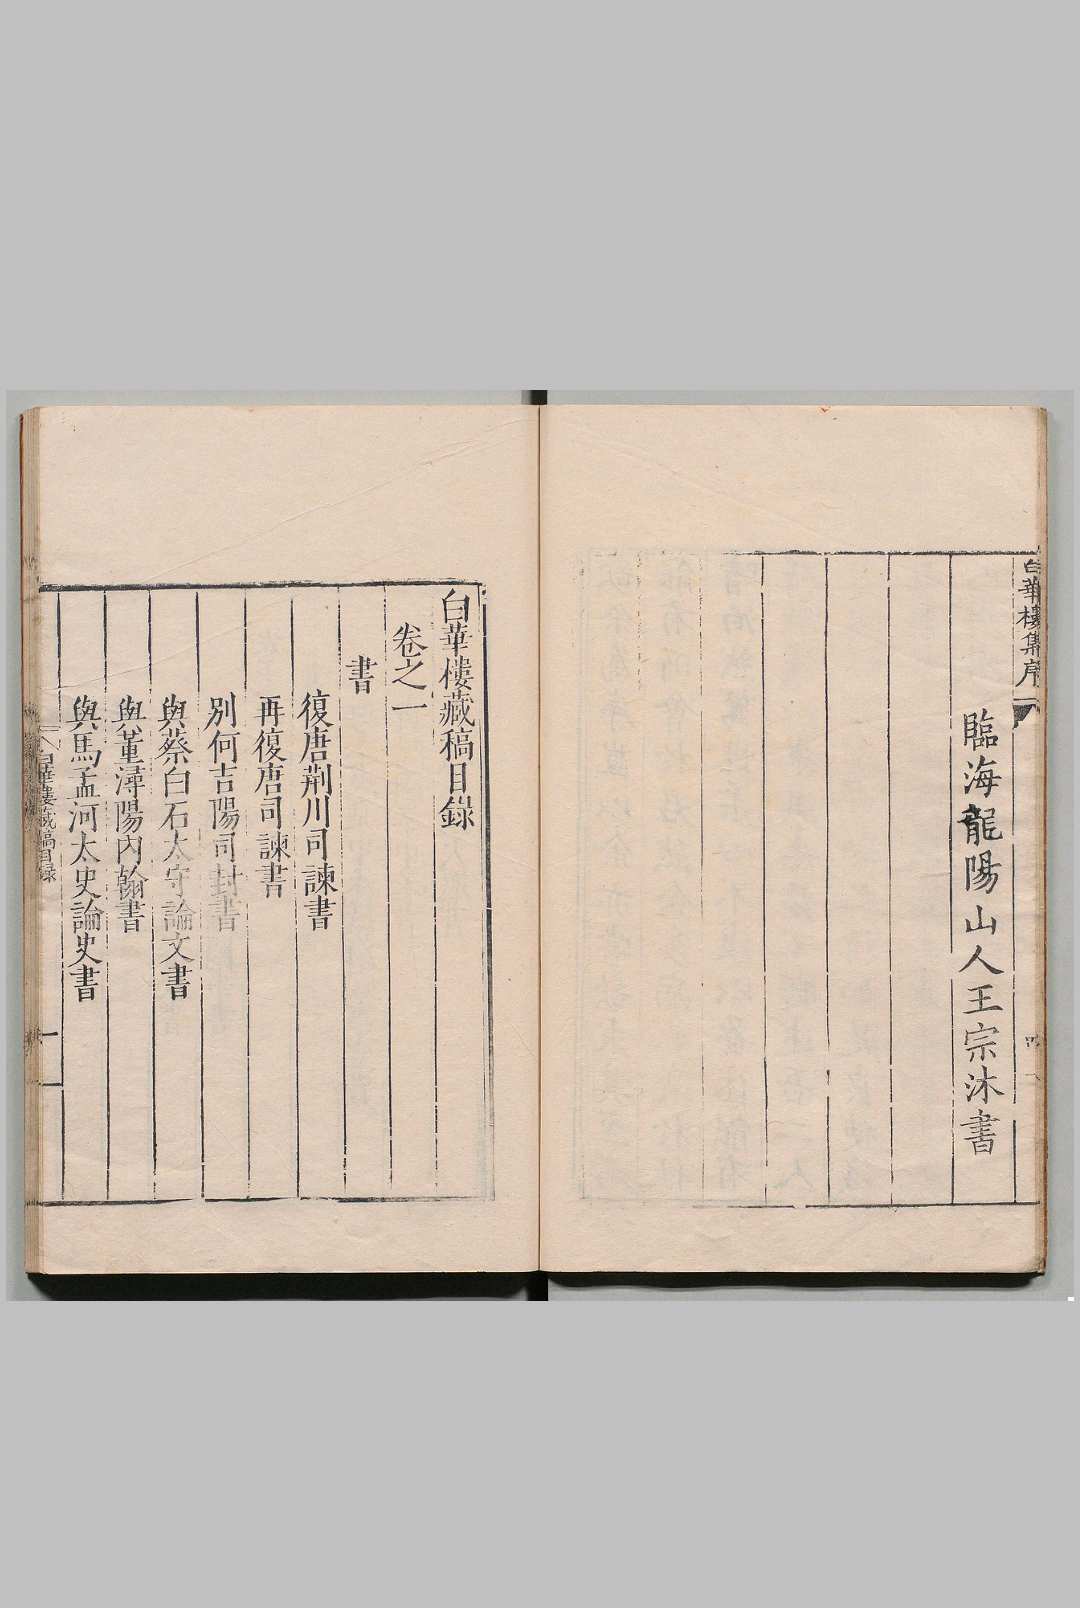 白華樓集序
四
臨海龍陽山人王宗沐書
白華樓藏稿目錄
卷之一
書
復唐荆川司諫書
再復唐司諫書
別何吉陽司封書
與蔡白石太守論文書
與董潯陽內翰書
與馬孟河太史論史書
白華樓藏稿目錄
一